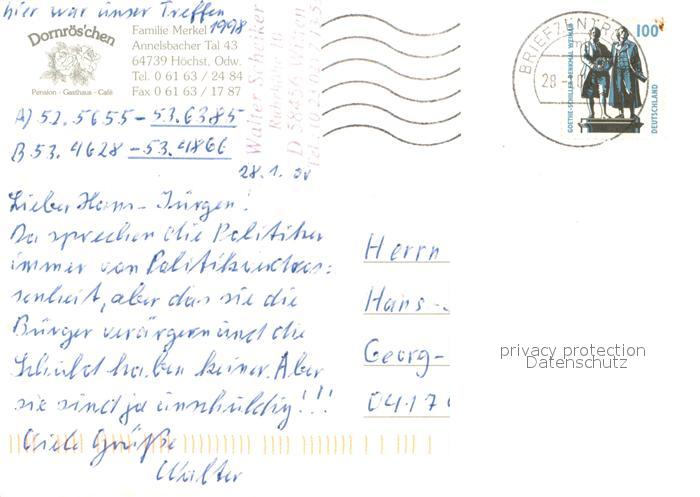 hier war unser Treffen
1998
Dornrös'chen
Pension - Gasthaus - Café
Familie Merkel
Annelsbacher Tal 43
64739 Höchst, Odw.
Tel. 0 61 63 / 24 84
Fax 0 61 63 / 17 87
Walter Scheiker
BRIEFZENTR
28
100
GOETHE-SCHILLER-DENKMAL WEIMAR
DEUTSCHLAND
A) 52.5655 - 53.6385
B 53.4628 - 53.4866
28.1.00
Lieber Hans-Jürgen!
Da sprechen die Politiker
immer von Politikverdros:
senheit, aber das sie die
Bürger verärgern und die
Schuld haben keiner. Aber
sie sind ja unschuldig!!!
Viele Grüße
Walter
Herrn
Hans-
Georg-
0417
privacy protection
Datenschutz